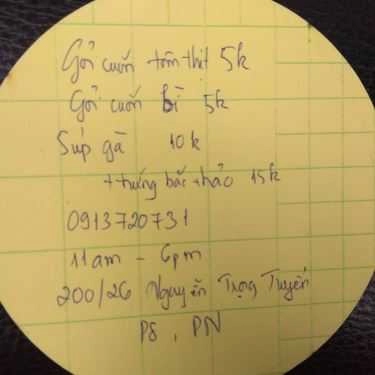 Gỏi cuốn tôm thịt 5k
Gỏi cuốn bì 5k
Súp gà 10k
+ trứng bắc thảo 15k
0913720731
11am - 6pm
200/26 Nguyễn Trọng Tuyển
P8, PN